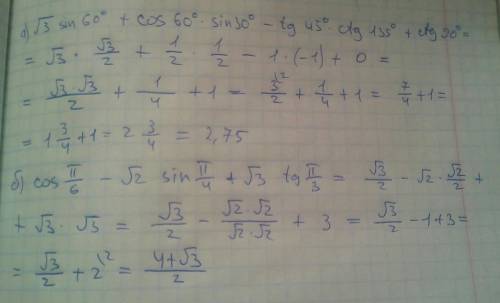 а) √3 sin 60° + cos 60° · sin 30° - tg 45° · ctg 135° + ctg 90° =
= √3 · √3/2 + 1/2 · 1/2 - 1 · (-1) + 0 =
= √3·√3/2 + 1/4 + 1 = 3\²/2 + 1/4 + 1 = 7/4 + 1 =
= 1 3/4 + 1 = 2 3/4 = 2,75
б) cos π/6 - √2 sin π/4 + √3 tg π/3 = √3/2 - √2 · √2/2 +
+ √3 · √3 = √3/2 - √2·√2/√2·√2 + 3 = √3/2 - 1 + 3 =
= √3/2 + 2\² = 4+√3/2